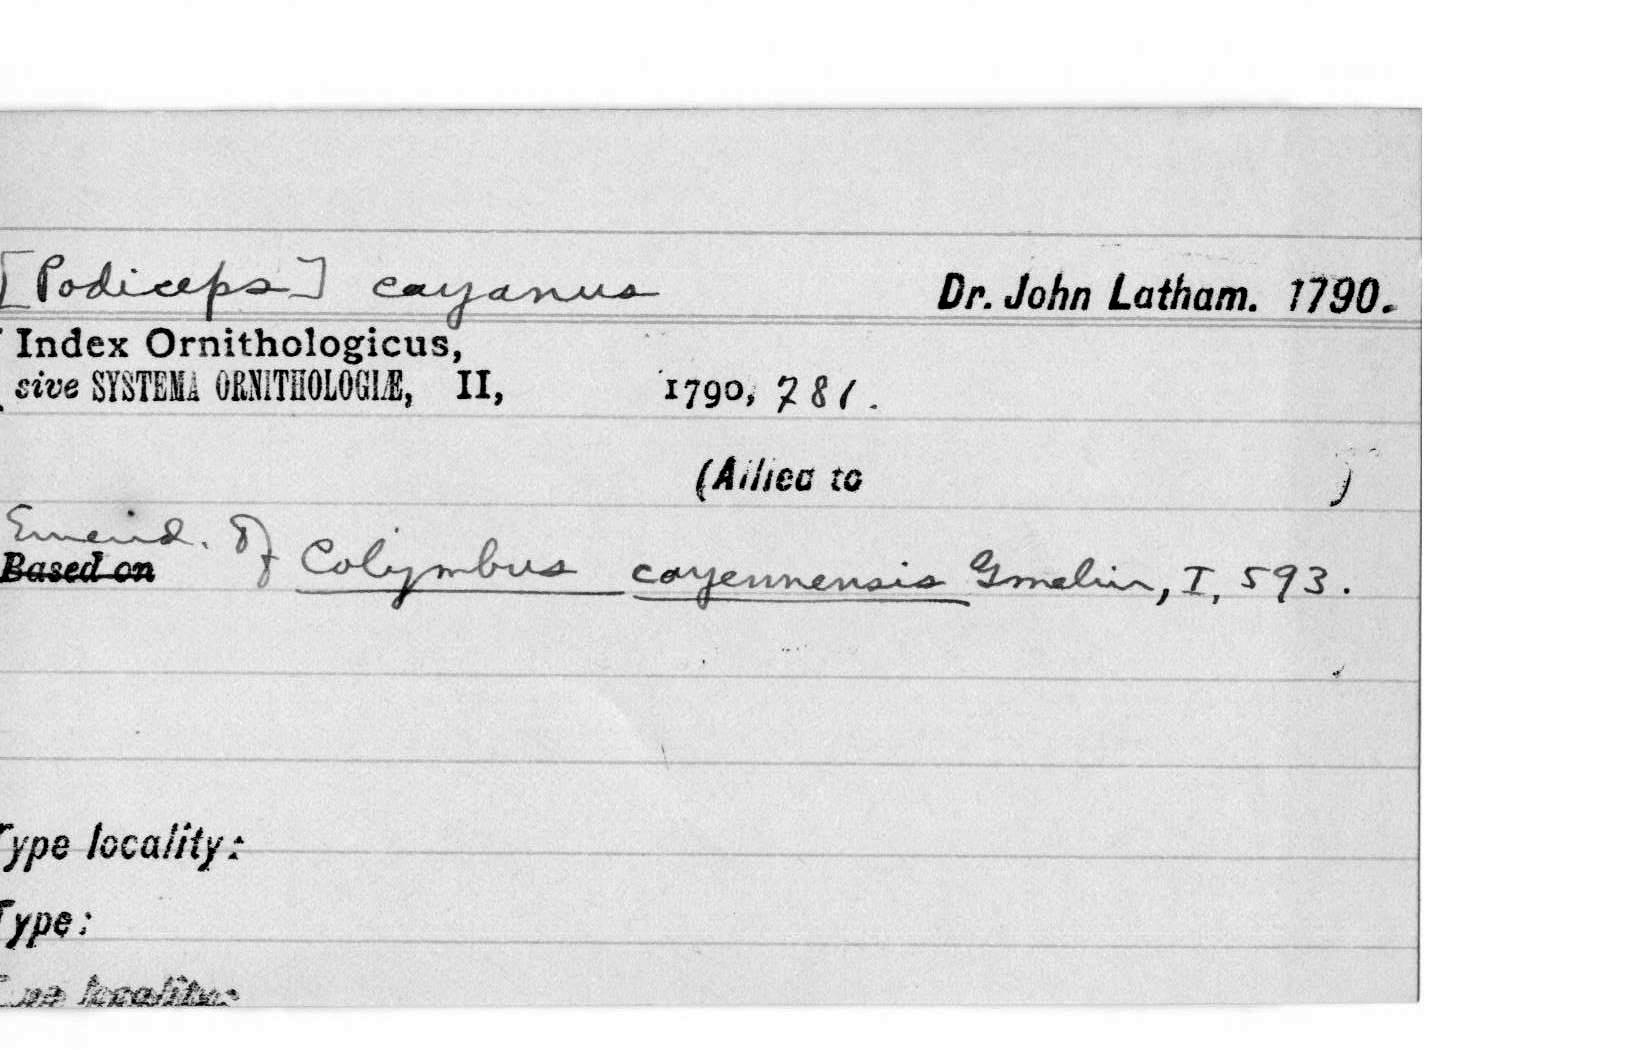 [Podiceps] cayanus Dr. John Latham. 1790.
Index Ornithologicus,
sive SYSTEMA ORNITHOLOGIÆ, II, 1790, 781.
(Allied to )
Emend. of Colymbus cayennensis Gmelin, I, 593.
Based on
Type locality:
Type:
Type locality: